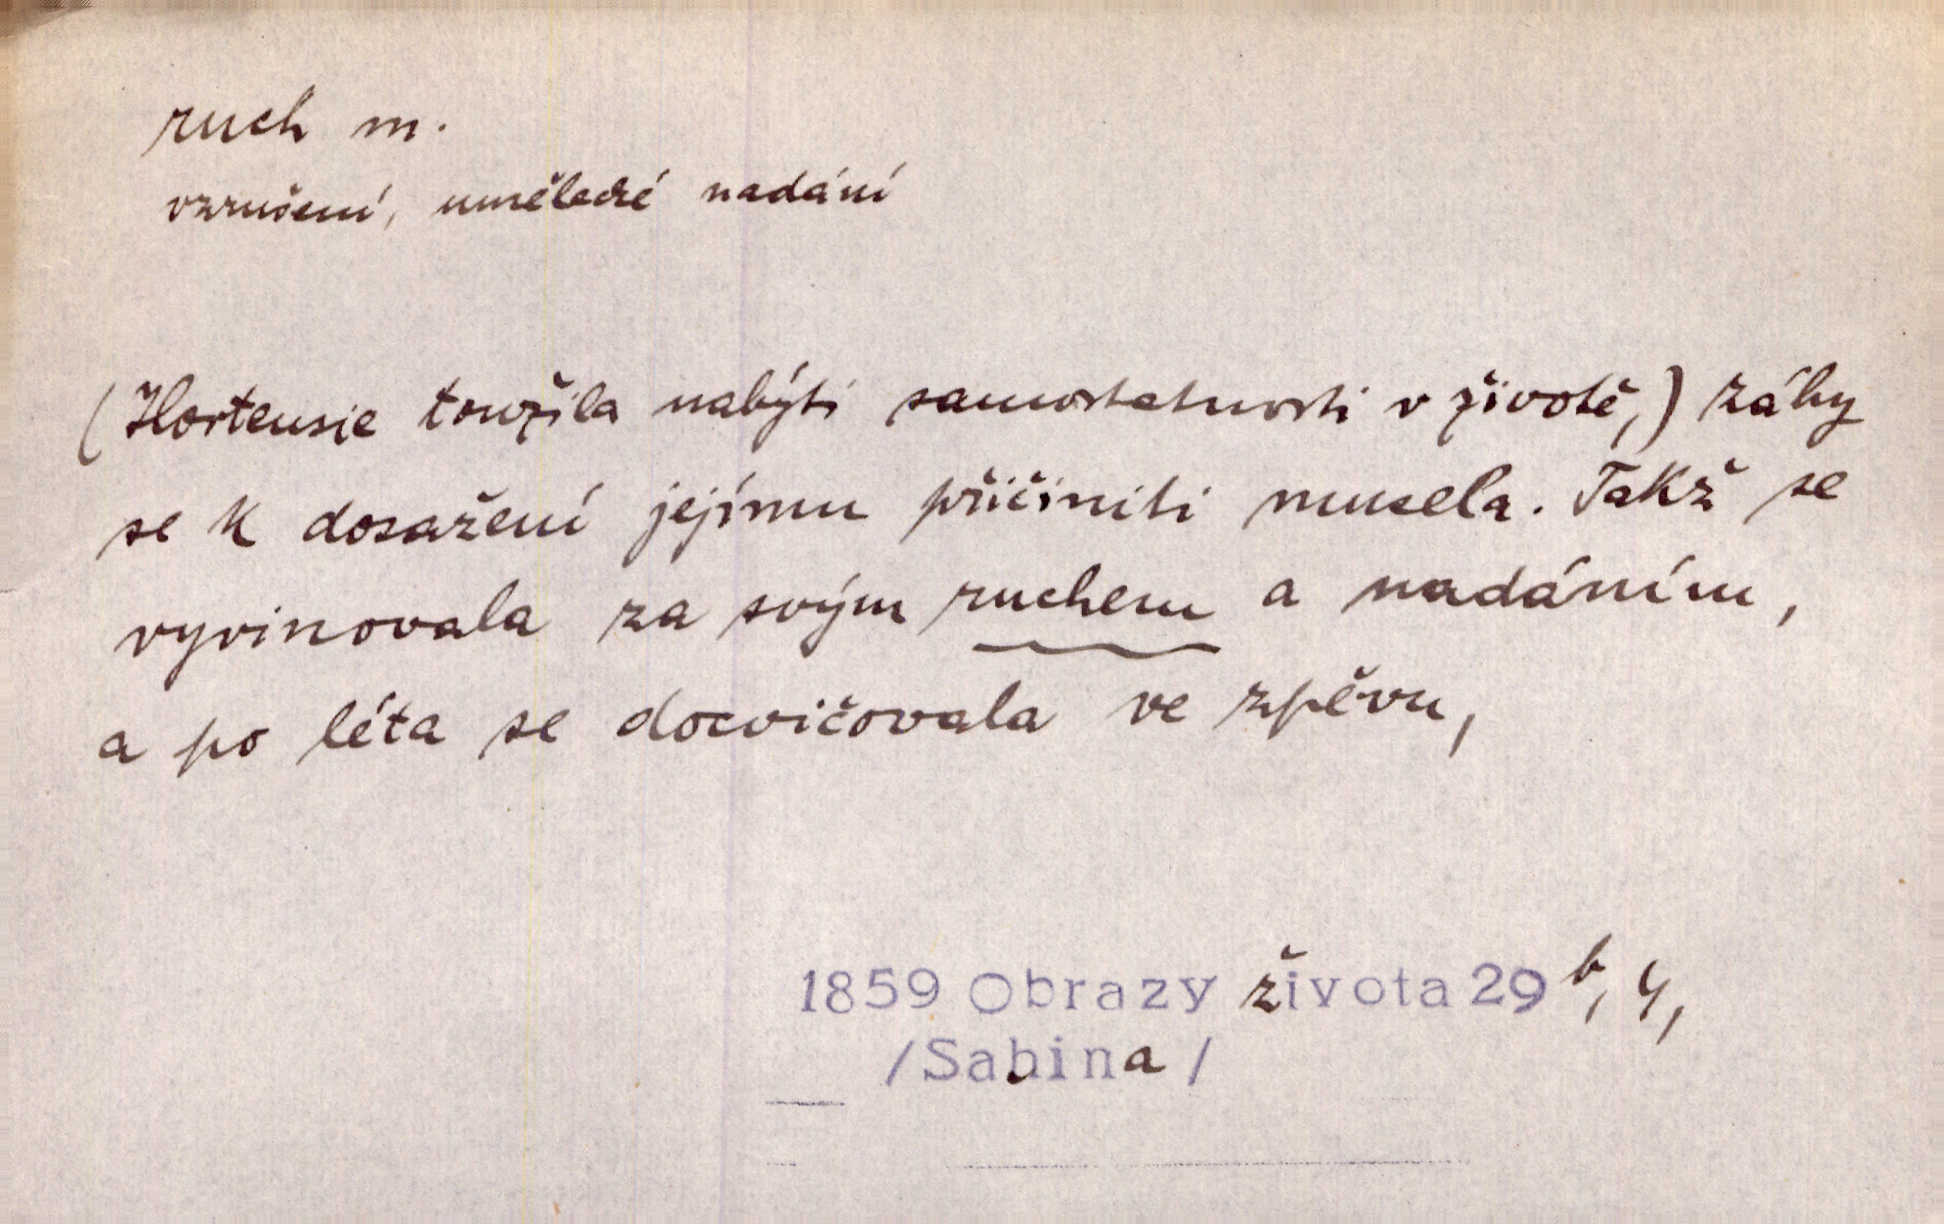 ruch m.
vzrušení, umělecké nadání
(Hortensie toužila nabýti samostatnosti v životě,) záhy
se k dosažení jejímu přičiniti musela. Takž se
vyvinovala za svým ruchem a nadáním,
a po léta se docvičovala ve zpěvu,
1859 Obrazy života 29 b, 4,
/Sabina/